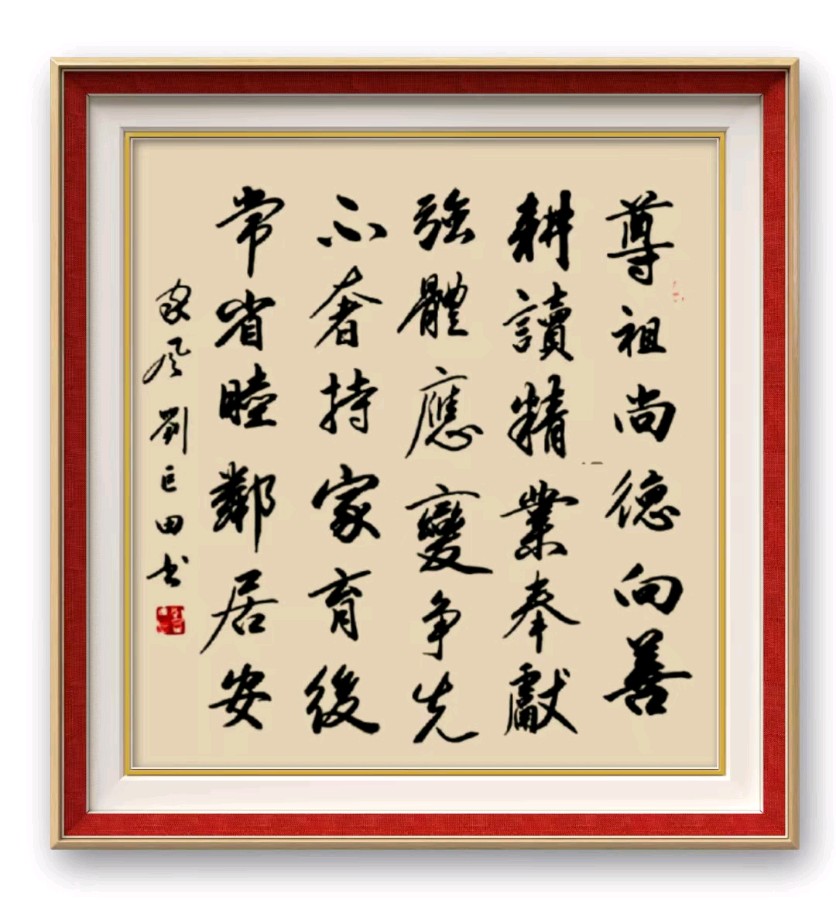 尊祖尚德向善
耕讀精業奉獻
強體應變争先
不奢持家育後
常省睦鄰居安
家风劉巨田书